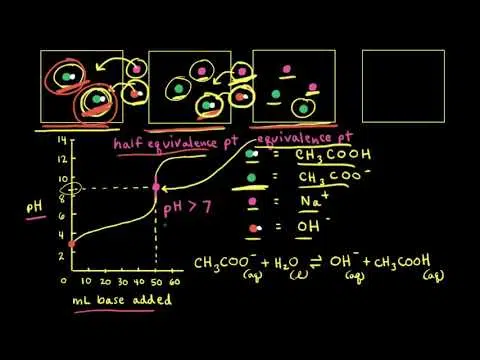 half equivalence pt
equivalence pt
14
12
10
8
6
4
2
0
pH
10 20 30 40 50 60
mL base added
pH > 7
= CH₃COOH
= CH₃COO⁻
= Na⁺
= OH⁻
CH₃COO⁻ + H₂O ⇌ OH⁻ + CH₃COOH
(aq) (l) (aq) (aq)